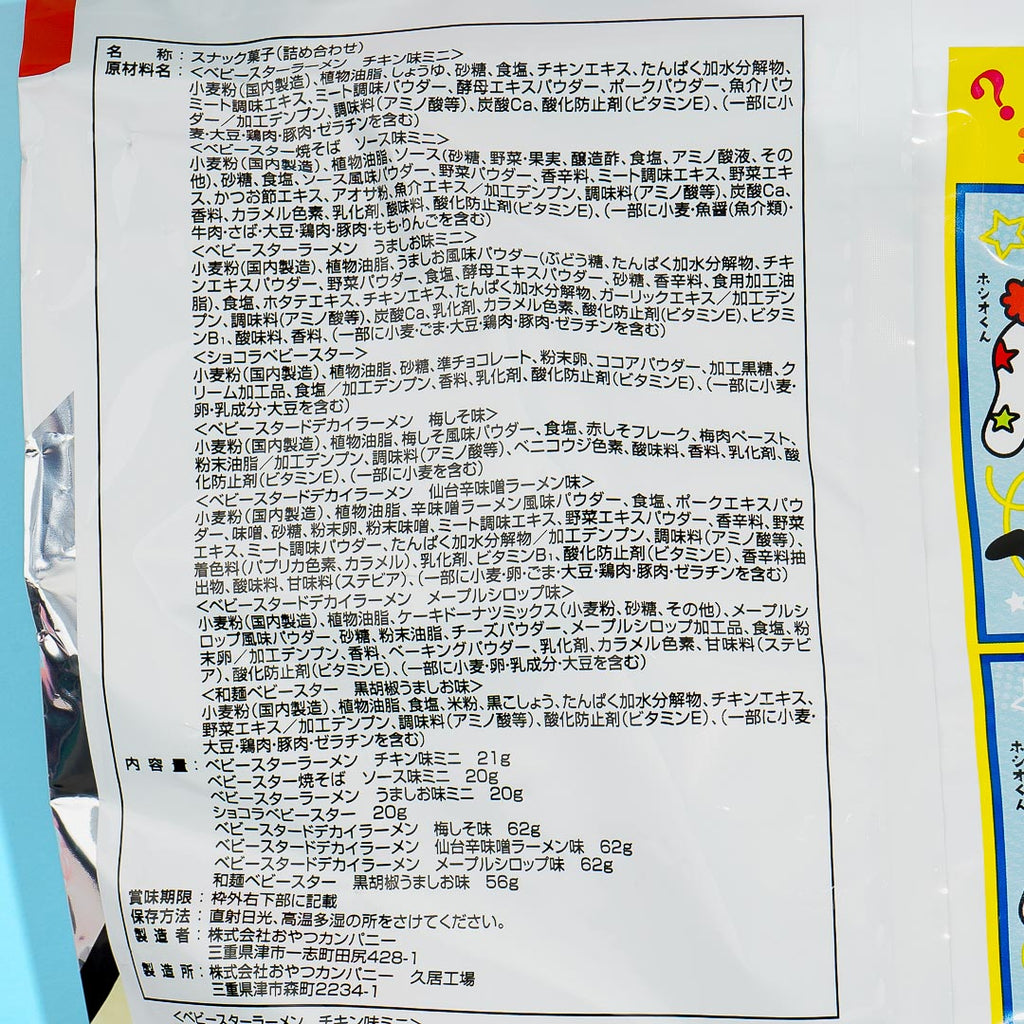 名　　称：スナック菓子(詰め合わせ)
原材料名：<ベビースターラーメン　チキン味ミニ>
小麦粉(国内製造)、植物油脂、しょうゆ、砂糖、食塩、チキンエキス、たんぱく加水分解物、
ミート調味エキス、ミート調味パウダー、酵母エキスパウダー、ポークパウダー、魚介パウ
ダー／加工デンプン、調味料(アミノ酸等)、炭酸Ca、酸化防止剤(ビタミンE)、(一部に小
麦・大豆・鶏肉・豚肉・ゼラチンを含む)
<ベビースター焼そば　ソース味ミニ>
小麦粉(国内製造)、植物油脂、ソース(砂糖、野菜・果実、醸造酢、食塩、アミノ酸液、その
他)、砂糖、食塩、ソース風味パウダー、野菜パウダー、香辛料、ミート調味エキス、野菜エキ
ス、かつお節エキス、アオサ粉、魚介エキス／加工デンプン、調味料(アミノ酸等)、炭酸Ca、
香料、カラメル色素、乳化剤、酸味料、酸化防止剤(ビタミンE)、(一部に小麦・魚醤(魚介類)・
牛肉・さば・大豆・鶏肉・豚肉・もも・りんごを含む)
<ベビースターラーメン　うましお味ミニ>
小麦粉(国内製造)、植物油脂、うましお風味パウダー(ぶどう糖、たんぱく加水分解物、チキ
ンエキスパウダー、野菜パウダー、食塩、酵母エキスパウダー、砂糖、香辛料、食用加工油
脂)、食塩、ホタテエキス、チキンエキス、たんぱく加水分解物、ガーリックエキス／加工デン
プン、調味料(アミノ酸等)、炭酸Ca、乳化剤、カラメル色素、酸化防止剤(ビタミンE)、ビタミ
ンB₁、酸味料、香料、(一部に小麦・ごま・大豆・鶏肉・豚肉・ゼラチンを含む)
<ショコラベビースター>
小麦粉(国内製造)、植物油脂、砂糖、準チョコレート、粉末卵、ココアパウダー、加工黒糖、ク
リーム加工品、食塩／加工デンプン、香料、乳化剤、酸化防止剤(ビタミンE)、(一部に小麦・
卵・乳成分・大豆を含む)
<ベビースタードデカイラーメン　梅しそ味>
小麦粉(国内製造)、植物油脂、梅しそ風味パウダー、食塩、赤しそフレーク、梅肉ペースト、
粉末油脂／加工デンプン、調味料(アミノ酸等)、ベニコウジ色素、酸味料、香料、乳化剤、酸
化防止剤(ビタミンE)、(一部に小麦を含む)
<ベビースタードデカイラーメン　仙台辛味噌ラーメン味>
小麦粉(国内製造)、植物油脂、辛味噌ラーメン風味パウダー、食塩、ポークエキスパウ
ダー、味噌、砂糖、粉末卵、粉末味噌、ミート調味エキス、野菜エキスパウダー、香辛料、野菜
エキス、ミート調味パウダー、たんぱく加水分解物／加工デンプン、調味料(アミノ酸等)、
着色料(パプリカ色素、カラメル)、乳化剤、ビタミンB₁、酸化防止剤(ビタミンE)、香辛料抽
出物、酸味料、甘味料(ステビア)、(一部に小麦・卵・ごま・大豆・鶏肉・豚肉・ゼラチンを含む)
<ベビースタードデカイラーメン　メープルシロップ味>
小麦粉(国内製造)、植物油脂、ケーキドーナツミックス(小麦粉、砂糖、その他)、メープルシ
ロップ風味パウダー、砂糖、粉末油脂、チーズパウダー、メープルシロップ加工品、食塩、粉
末卵／加工デンプン、香料、ベーキングパウダー、乳化剤、カラメル色素、甘味料(ステビ
ア)、酸化防止剤(ビタミンE)、(一部に小麦・卵・乳成分・大豆を含む)
<和麺ベビースター　黒胡椒うましお味>
小麦粉(国内製造)、植物油脂、食塩、米粉、黒こしょう、たんぱく加水分解物、チキンエキス、
野菜エキス／加工デンプン、調味料(アミノ酸等)、酸化防止剤(ビタミンE)、(一部に小麦・
大豆・鶏肉・豚肉・ゼラチンを含む)
内 容 量：ベビースターラーメン　チキン味ミニ　21g
ベビースター焼そば　ソース味ミニ　20g
ベビースターラーメン　うましお味ミニ　20g
ショコラベビースター　20g
ベビースタードデカイラーメン　梅しそ味　62g
ベビースタードデカイラーメン　仙台辛味噌ラーメン味　62g
ベビースタードデカイラーメン　メープルシロップ味　62g
和麺ベビースター　黒胡椒うましお味　56g
賞味期限：枠外右下部に記載
保存方法：直射日光、高温多湿の所をさけてください。
製 造 者：株式会社おやつカンパニー
三重県津市一志町田尻428-1
製 造 所：株式会社おやつカンパニー　久居工場
三重県津市森町2234-1
<ベビースターラーメン　チキン味ミニ>
?
ホシオくん
ホシオくん